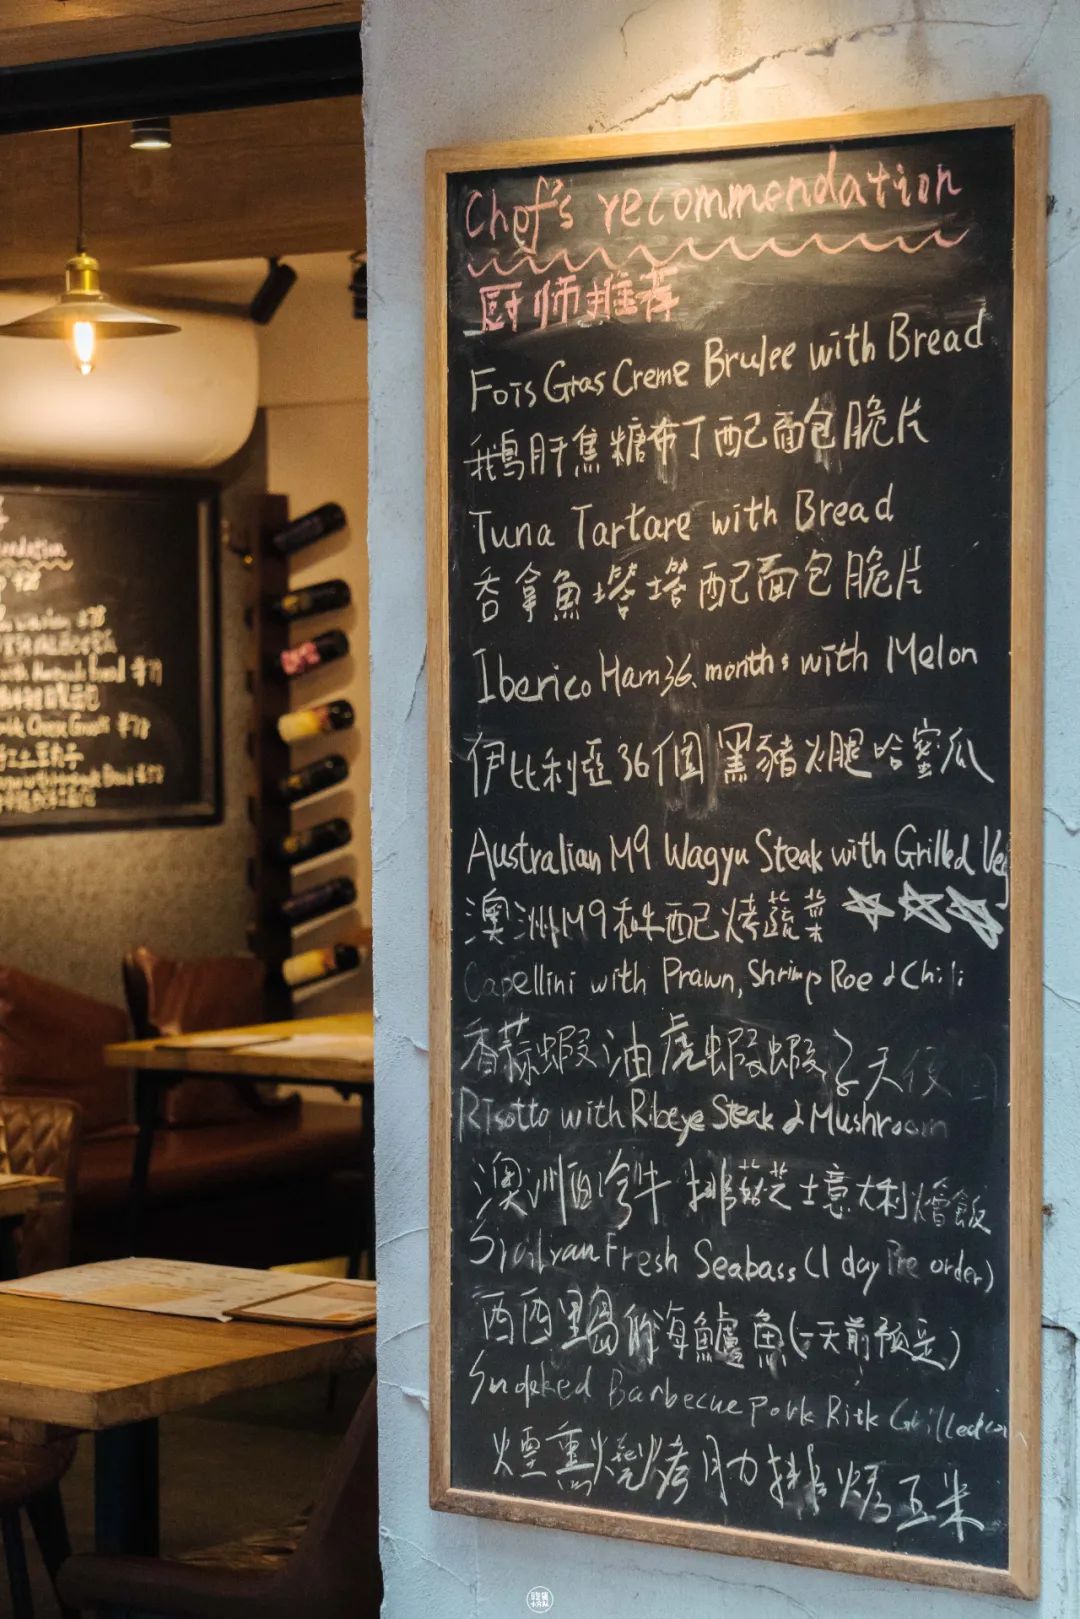 Chef's recommendation
厨师推荐
Fois Gras Creme Brulee with Bread
鹅肝焦糖布丁配面包脆片
Tuna Tartare with Bread
吞拿魚塔塔配面包脆片
Iberico Ham 36 months with Melon
伊比利亞36個黑豬火腿哈蜜瓜
Australian M9 Wagyu Steak with Grilled Veg
澳洲M9和牛配烤蔬菜
Capellini with Prawn, Shrimp Roe & Chili
香蒜蝦油虎蝦蝦子天使
Risotto with Ribeye Steak & Mushroom
澳洲牛排菇芝士意大利燴飯
Fresh Seabass (1 day Pre order)
西西里海鱸魚(一天前预定)
Smoked Barbecue Pork Grilled
煙熏燒烤肋排烤玉米